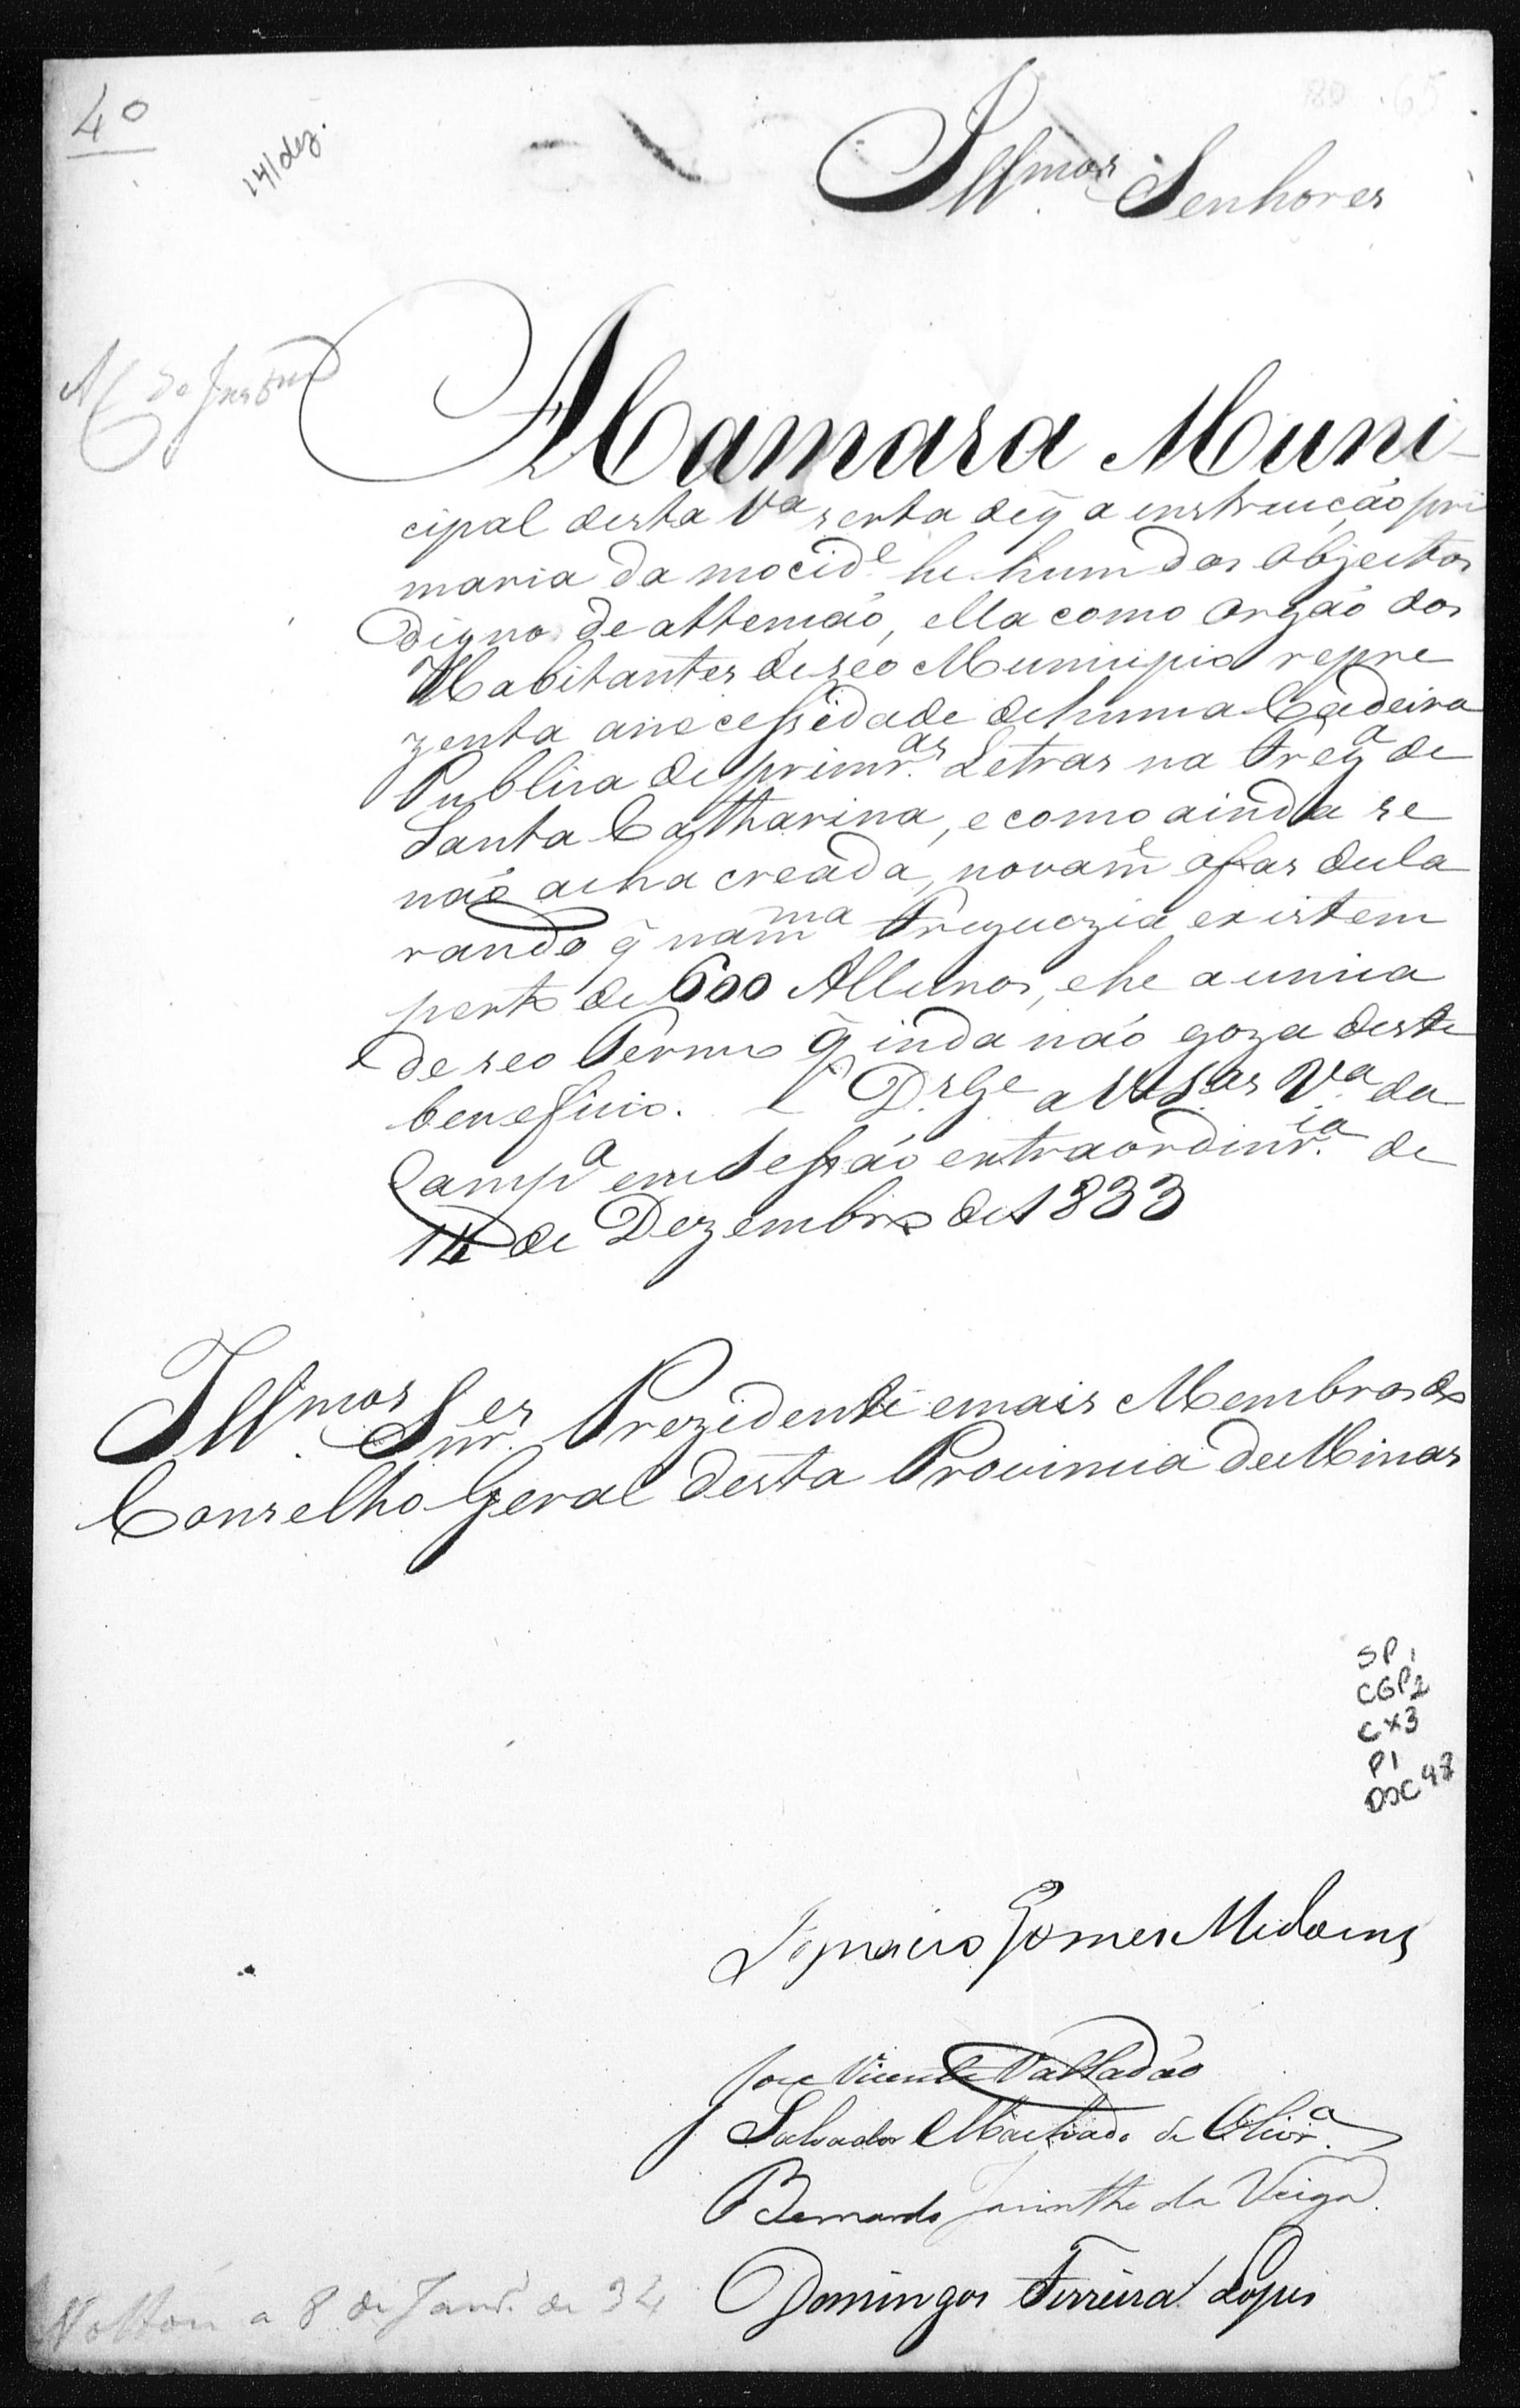 40
14/dez.
80 65
Illmos Senhores
A Camara Muni-
cipal desta Va serta de q̃ a enstrucção pri
maria da mocide he hum dos Objectos
digno de attenção, ella como Orgão dos
Habitantes de seo Municipio repre
zenta a necessidade de huma Cadeira
Publica de primras Letras na Frega de
Santa Catharina, e como ainda se
não acha creada, novamẽ o fas decla
rando q̃ na mma Freguezia existem
perto de 600 Allunos, e he a unica
de seo Termo q̃ inda não goza deste
beneficio. Ds Ge a VVSas Va da
Campa em Sessão extraordinria de
14 de Dezembro de 1833
Illmos Snres Prezidente e mais Membros do
Conselho Geral desta Provincia de Minas
SP 1
CGP 1
CX3
P1
DOC 48
Ignacio Gomes Midoens
Joze Vicente Valladão
Salvador Machado de Olivra
Bernardo Jacintho da Veiga
Domingos Ferreira Lopes
a 8 de Janr. de 34